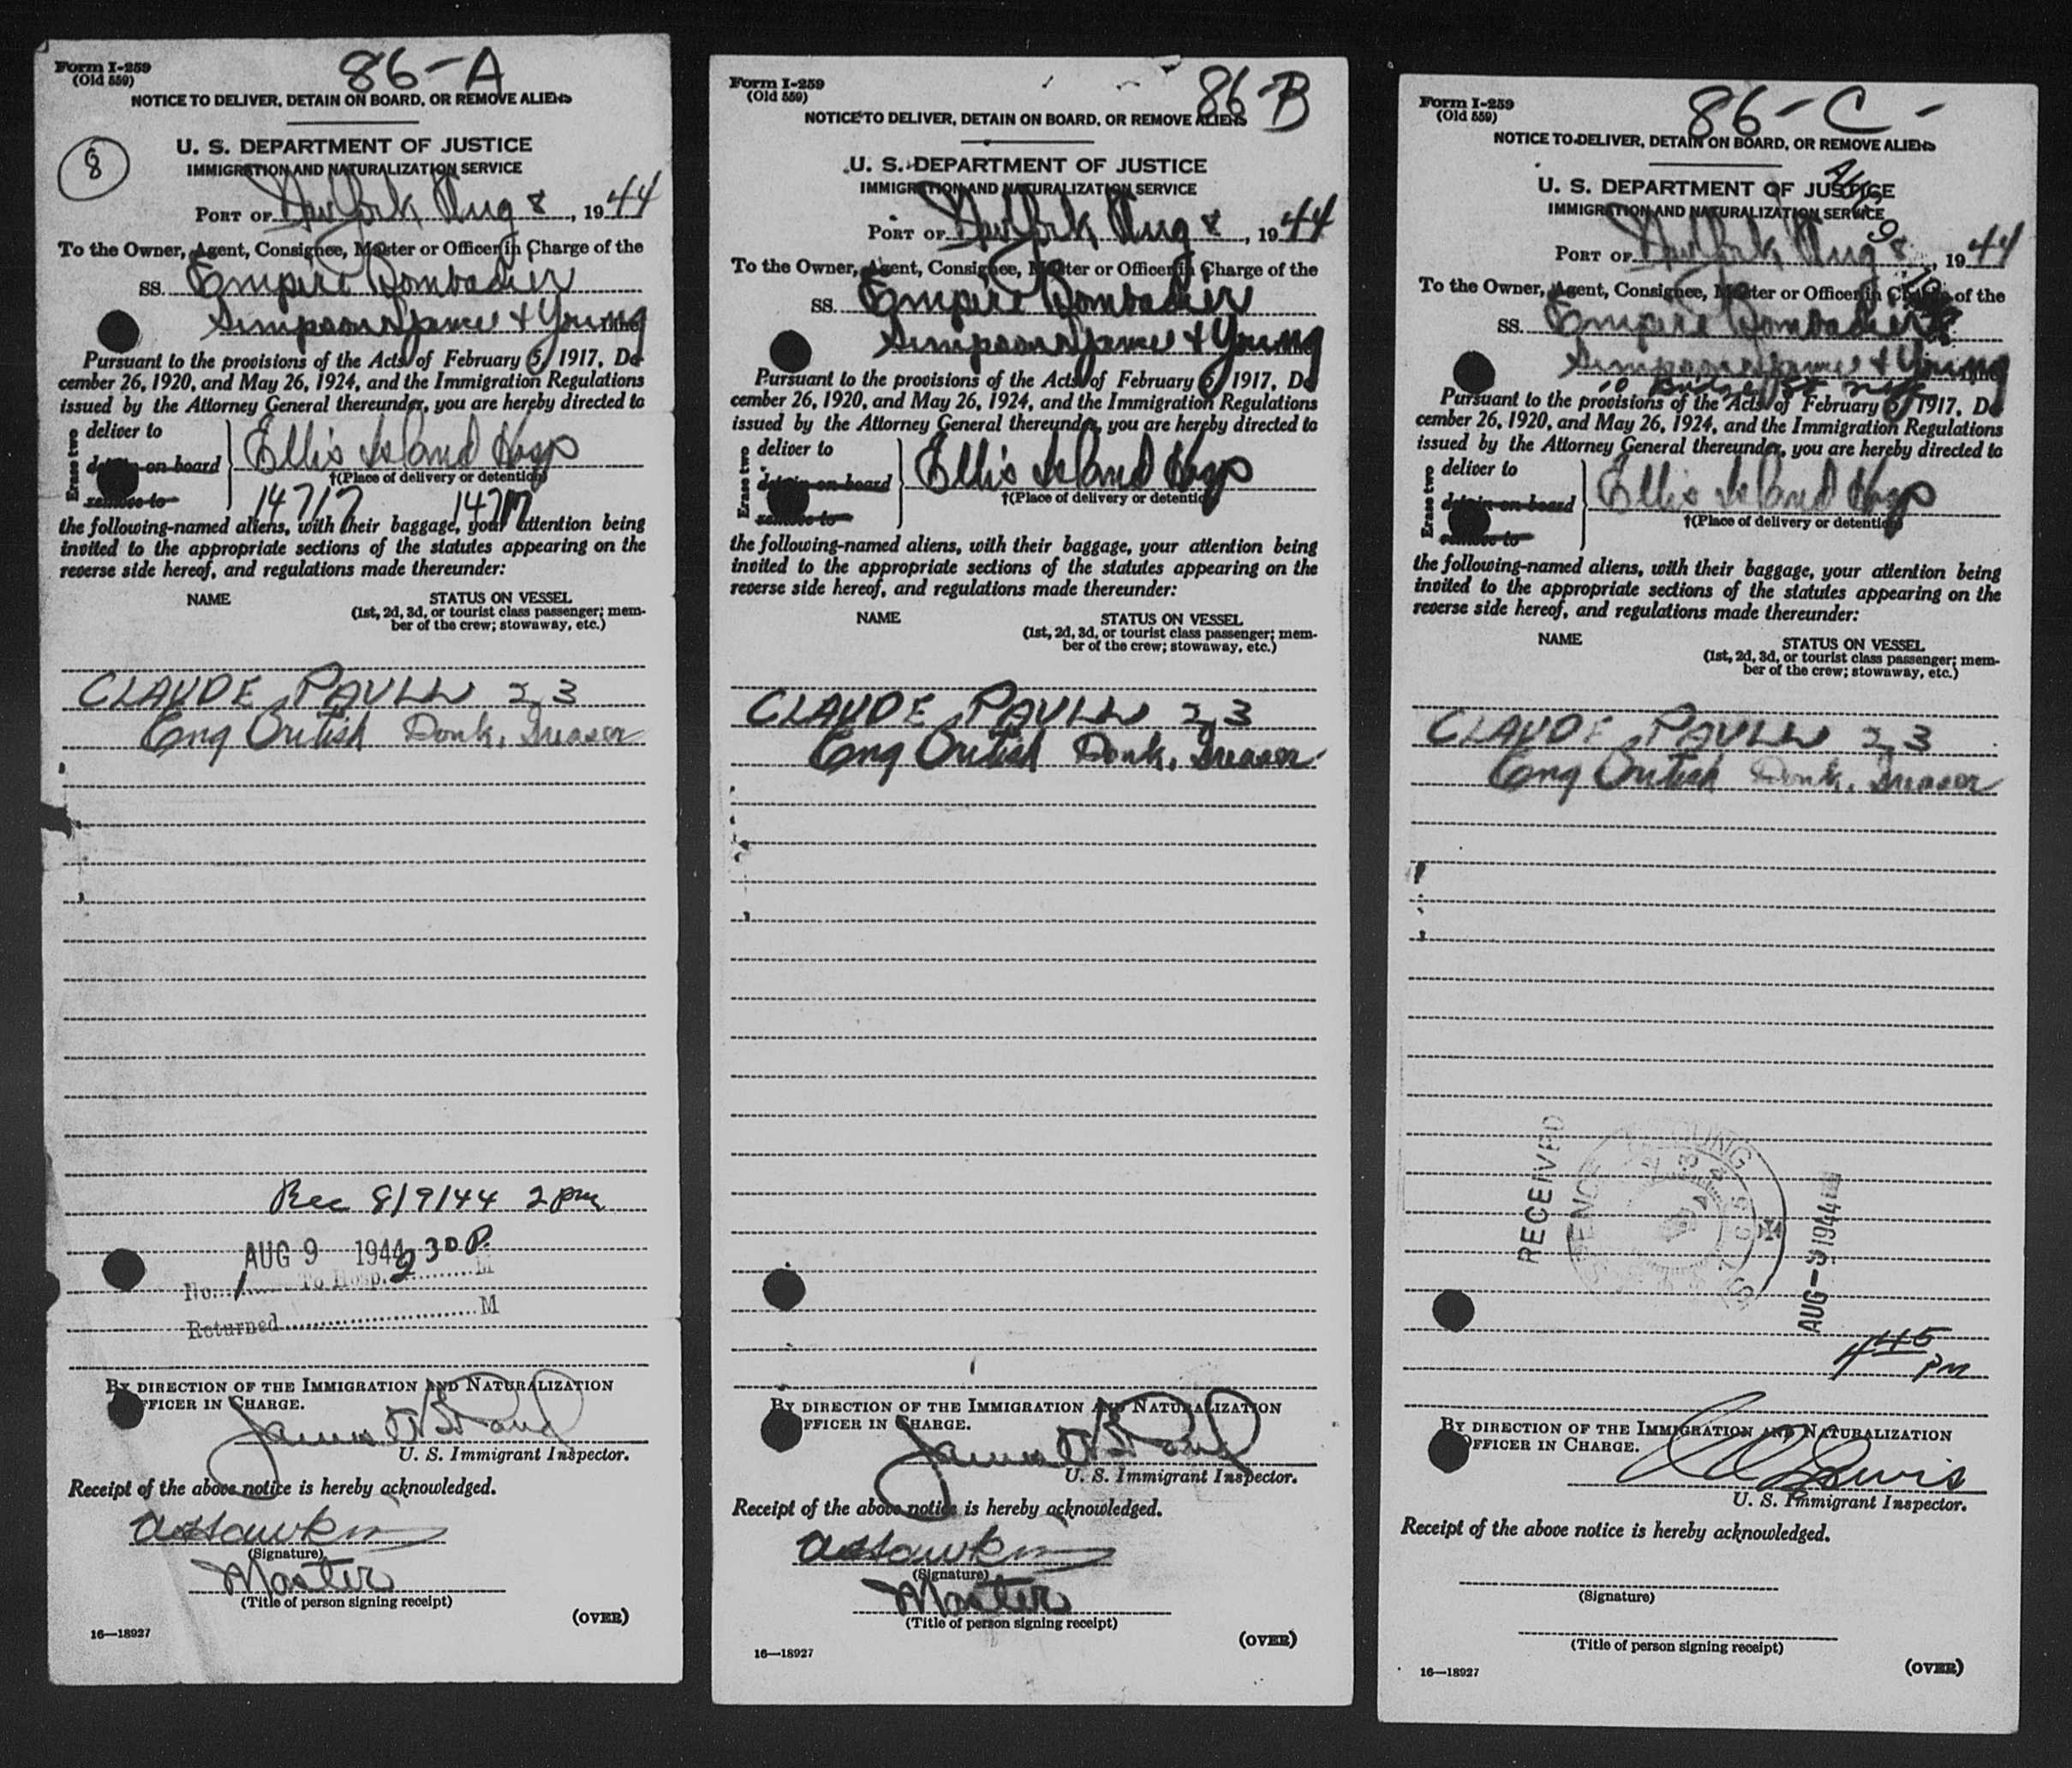 86-A
Form I-259
(Old 559)
NOTICE TO DELIVER, DETAIN ON BOARD, OR REMOVE ALIENS
8
U. S. DEPARTMENT OF JUSTICE
IMMIGRATION AND NATURALIZATION SERVICE
PORT OF New York Aug 8, 1944
To the Owner, Agent, Consignee, Master or Officer in Charge of the
SS. Empire Bombadier
Simpson Spence + Young Line
Pursuant to the provisions of the Acts of February 5, 1917, De-
cember 26, 1920, and May 26, 1924, and the Immigration Regulations
issued by the Attorney General thereunder, you are hereby directed to
Erase two
deliver to
detain on board
remove to
Ellis Island Hosp
†(Place of delivery or detention)
14717 14717
the following-named aliens, with their baggage, your attention being
invited to the appropriate sections of the statutes appearing on the
reverse side hereof, and regulations made thereunder:
NAME STATUS ON VESSEL
(1st, 2d, 3d, or tourist class passenger; mem-
ber of the crew; stowaway, etc.)
CLAUDE PAULL 23
Eng British Donk. Greaser
Rec 8/9/44 2 pm
AUG 9 1944 2 30 P.
No. 1 To Hosp. M
Returned M
BY DIRECTION OF THE IMMIGRATION AND NATURALIZATION
OFFICER IN CHARGE.
U. S. Immigrant Inspector.
Receipt of the above notice is hereby acknowledged.
(Signature)
Master
(Title of person signing receipt)
(OVER)
16—18927
86-B
Form I-259
(Old 559)
NOTICE TO DELIVER, DETAIN ON BOARD, OR REMOVE ALIENS
U. S. DEPARTMENT OF JUSTICE
IMMIGRATION AND NATURALIZATION SERVICE
PORT OF New York Aug 8, 1944
To the Owner, Agent, Consignee, Master or Officer in Charge of the
SS. Empire Bombadier
Simpson Spence + Young
Pursuant to the provisions of the Acts of February 5, 1917, De-
cember 26, 1920, and May 26, 1924, and the Immigration Regulations
issued by the Attorney General thereunder, you are hereby directed to
Erase two
deliver to
detain on board
remove to
Ellis Island Hosp
†(Place of delivery or detention)
the following-named aliens, with their baggage, your attention being
invited to the appropriate sections of the statutes appearing on the
reverse side hereof, and regulations made thereunder:
NAME STATUS ON VESSEL
(1st, 2d, 3d, or tourist class passenger; mem-
ber of the crew; stowaway, etc.)
CLAUDE PAULL 23
Eng British Donk. Greaser
BY DIRECTION OF THE IMMIGRATION AND NATURALIZATION
OFFICER IN CHARGE.
U. S. Immigrant Inspector.
Receipt of the above notice is hereby acknowledged.
(Signature)
Master
(Title of person signing receipt)
(OVER)
16—18927
86-C-
Form I-259
(Old 559)
NOTICE TO DELIVER, DETAIN ON BOARD, OR REMOVE ALIENS
U. S. DEPARTMENT OF JUSTICE
IMMIGRATION AND NATURALIZATION SERVICE
Aug 9
PORT OF New York Aug 8, 1944
To the Owner, Agent, Consignee, Master or Officer in Charge of the
SS. Empire Bombadier
Simpson Spence + Young Line
10 Bridge St
Pursuant to the provisions of the Acts of February 5, 1917, De-
cember 26, 1920, and May 26, 1924, and the Immigration Regulations
issued by the Attorney General thereunder, you are hereby directed to
Erase two
deliver to
detain on board
remove to
Ellis Island Hosp
†(Place of delivery or detention)
the following-named aliens, with their baggage, your attention being
invited to the appropriate sections of the statutes appearing on the
reverse side hereof, and regulations made thereunder:
NAME STATUS ON VESSEL
(1st, 2d, 3d, or tourist class passenger; mem-
ber of the crew; stowaway, etc.)
CLAUDE PAULL 23
Eng British Donk. Greaser
RECEIVED
AUG-9 1944
4 45 PM
BY DIRECTION OF THE IMMIGRATION AND NATURALIZATION
OFFICER IN CHARGE.
Lewis
U. S. Immigrant Inspector.
Receipt of the above notice is hereby acknowledged.
(Signature)
(Title of person signing receipt)
(OVER)
16—18927